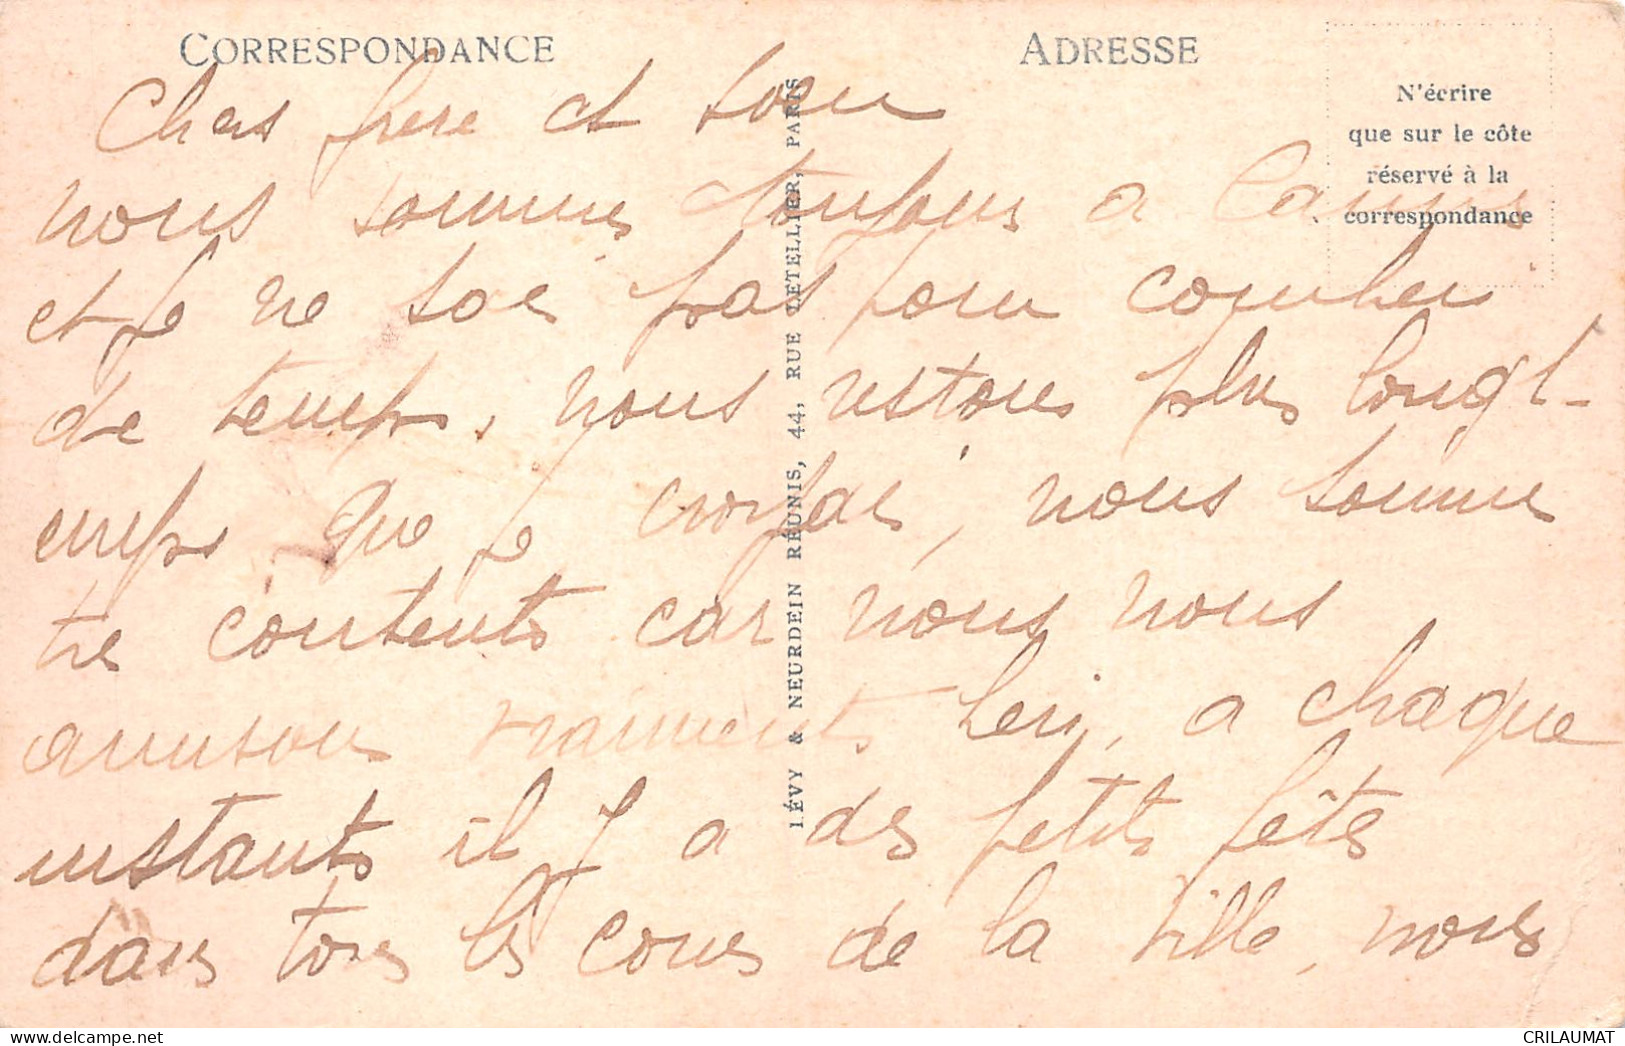 CORRESPONDANCE
ADRESSE
N'écrire
que sur le côte
réservé à la
correspondance
LÉVY & NEURDEIN RÉUNIS, 44, RUE LETELLIER, PARIS
Chers frere et soeu
nous somme toujours a Cannes
et je ne sai pas pour combien
de temps, nous restons plus longt-
emps que je croyai, nous somme
tre contents car nous nous
amuson vraiments bein, a chaque
instants il y a des petits fêtes
dans tous les coins de la ville, nous
CRILAUMAT